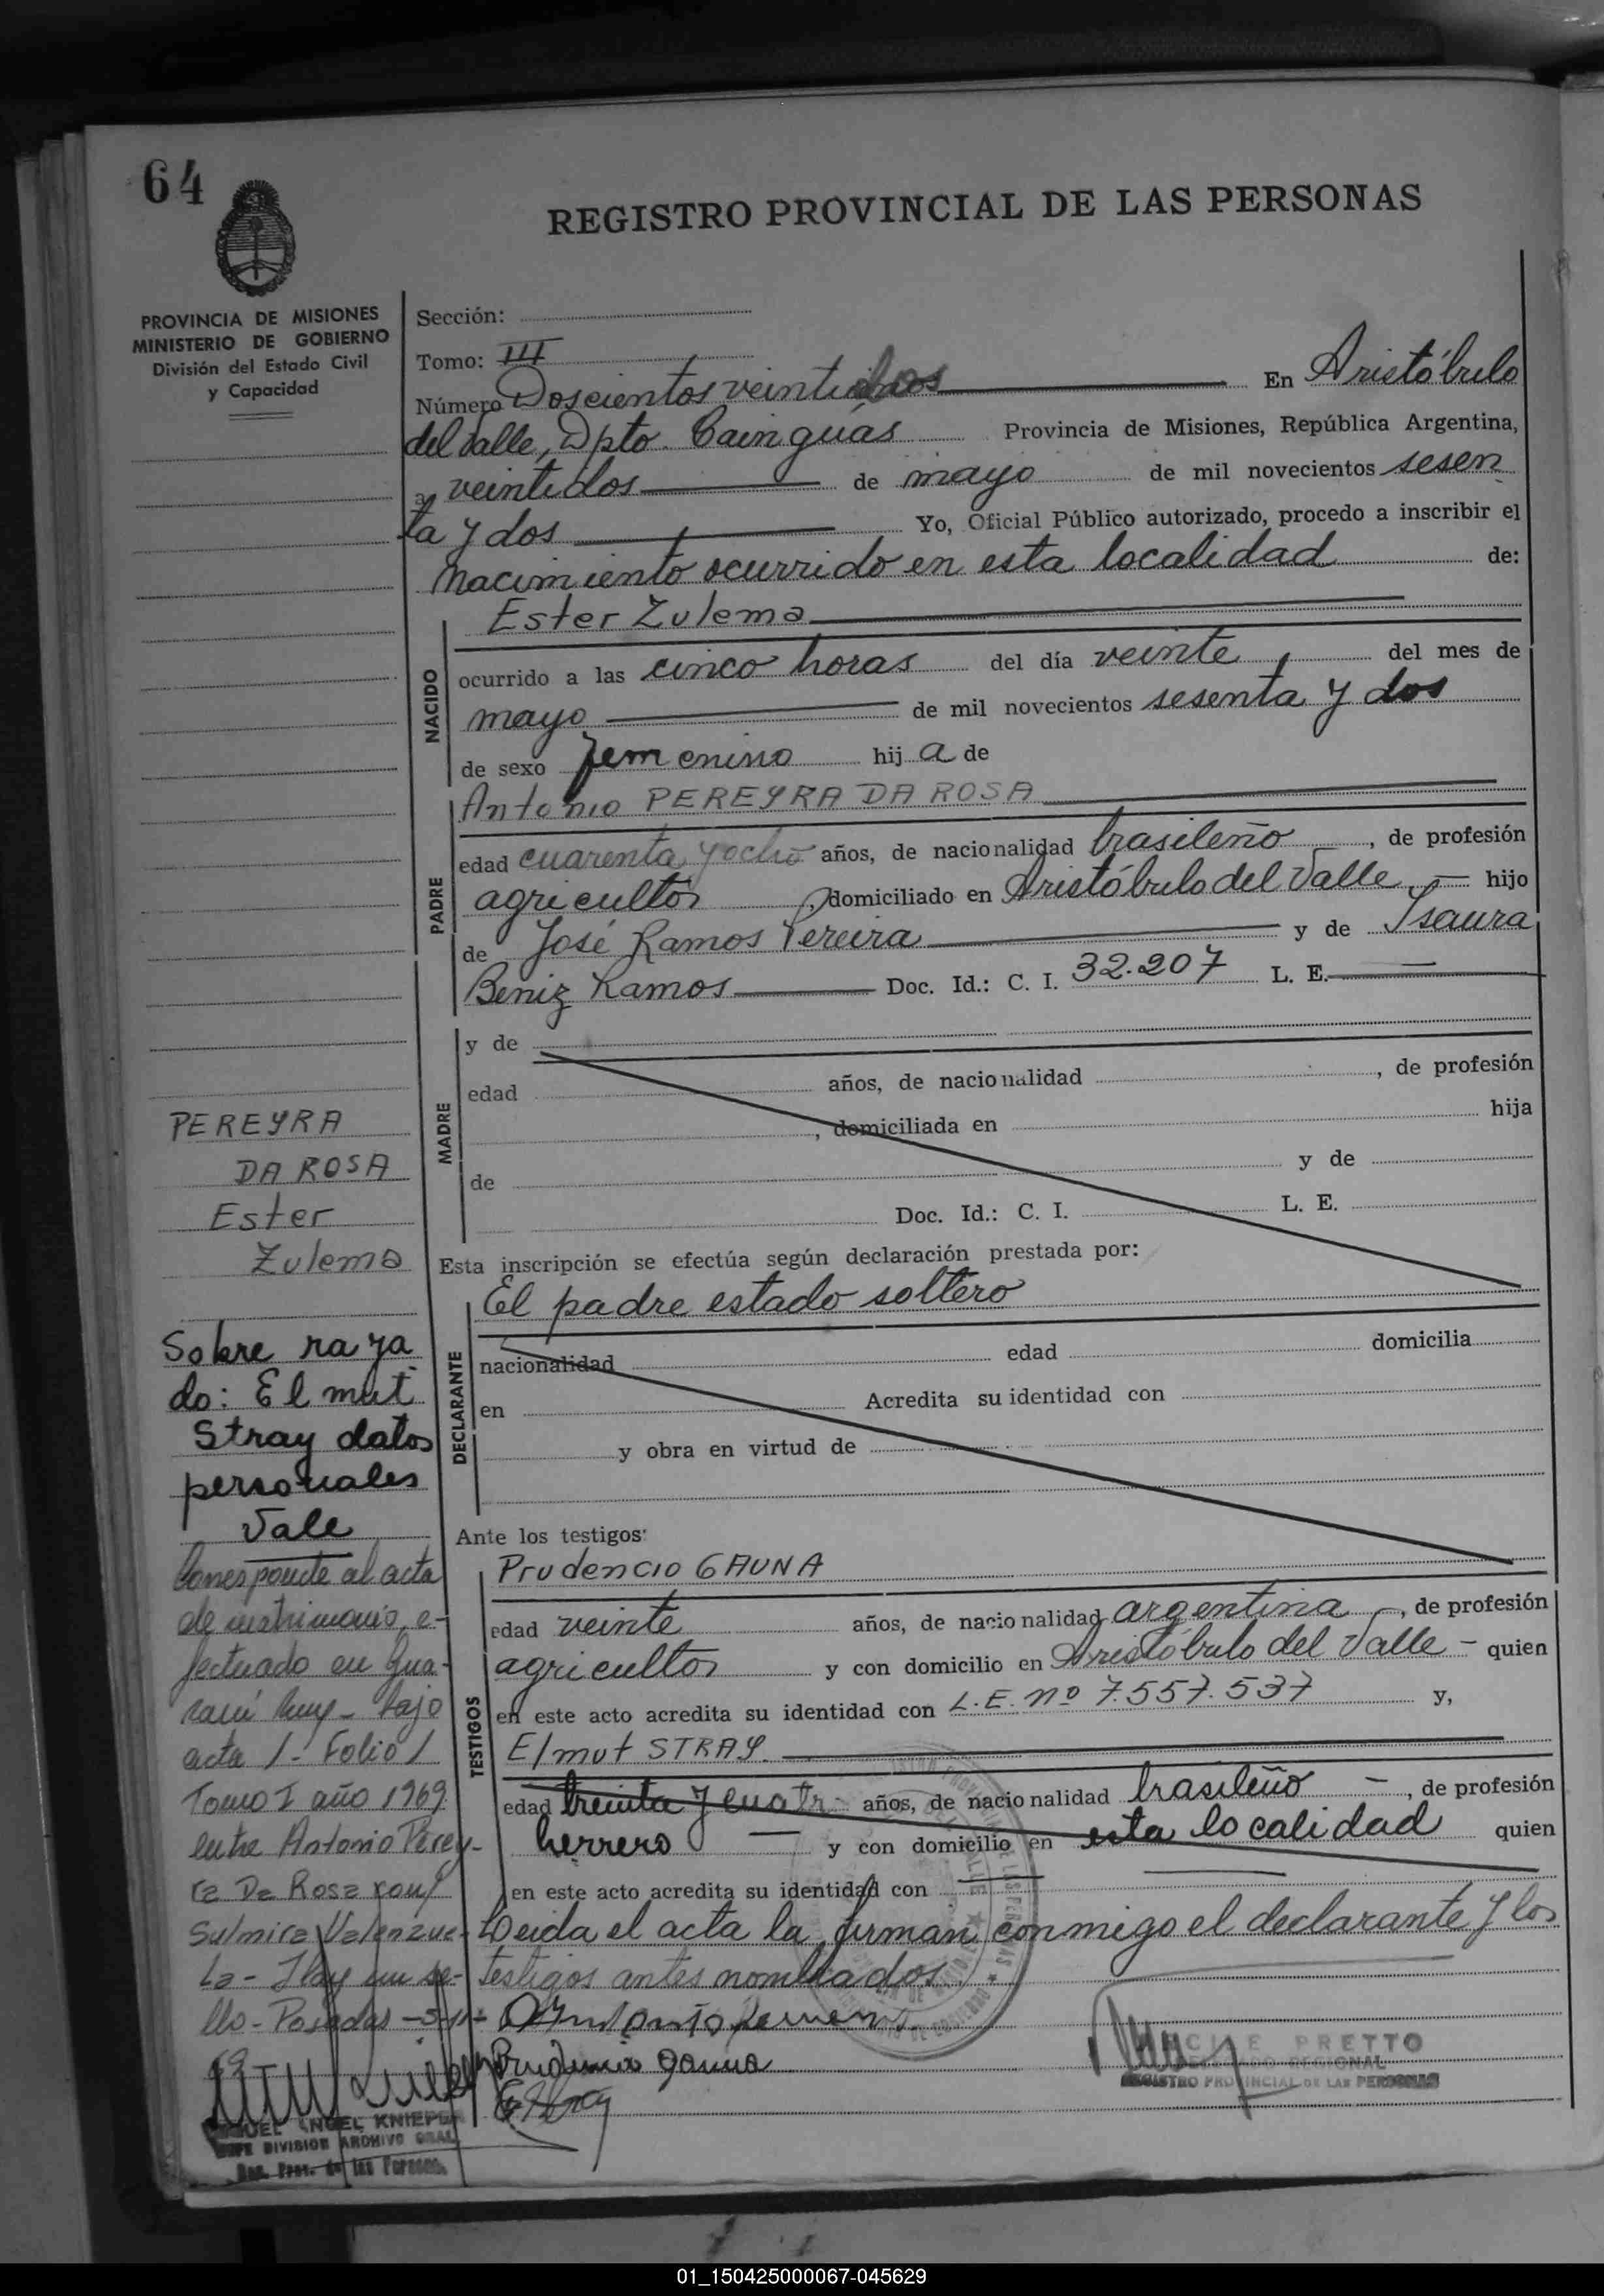 64
REGISTRO PROVINCIAL DE LAS PERSONAS
PROVINCIA DE MISIONES
MINISTERIO DE GOBIERNO
División del Estado Civil
y Capacidad
Sección:
Tomo: III
Número Doscientos veintidos En Aristóbulo
del Valle, Dpto. Cainguás Provincia de Misiones, República Argentina,
a veintidos de mayo de mil novecientos sesen
ta y dos Yo, Oficial Público autorizado, procedo a inscribir el
Nacimiento ocurrido en esta localidad de:
NACIDO
Ester Zulema
ocurrido a las cinco horas del día veinte del mes de
mayo de mil novecientos sesenta y dos
de sexo femenino hij a de
PADRE
Antonio PEREYRA DA ROSA
edad cuarenta y ocho años, de nacionalidad brasileño, de profesión
agricultor, domiciliado en Aristóbulo del Valle, — hijo
de José Ramos Pereira y de Isaura
Beniz Ramos Doc. Id.: C. I. 32.207 L. E. —
MADRE
y de
edad años, de nacionalidad , de profesión
, domiciliada en hija
de y de
Doc. Id.: C. I. L. E.
Esta inscripción se efectúa según declaración prestada por:
DECLARANTE
El padre estado soltero
nacionalidad edad domicilia
en Acredita su identidad con
y obra en virtud de
Ante los testigos:
TESTIGOS
Prudencio GAUNA
edad veinte años, de nacionalidad argentina, de profesión
agricultor y con domicilio en Aristóbulo del Valle - quien
en este acto acredita su identidad con L.E. nº 7.557.537 y,
Elmut STRAY.
edad treinta y cuatr años, de nacionalidad brasileño —, de profesión
herrero — y con domicilio en esta localidad quien
en este acto acredita su identidad con
Leida el acta la firman conmigo el declarante y los
testigos antes nombrados.
PRETTO
REGIONAL
REGISTRO PROVINCIAL DE LAS PERSONAS
PEREYRA
DA ROSA
Ester
Zulema
Sobre raya
do: El mut
Stray datos
personales
Vale
Corresponde al acta
de matrimonio, e-
fectuado en Gua-
raní bajo
acta 1 - Folio 1
Tomo I año 1969
entre Antonio Perey-
ra Da Rosa con
Sulmira Valenzue-
la - Hay un se-
llo - Posadas
69
KNIEPE
DIVISION ARCHIVO GRAL.
Reg. Prov. de las Personas
01_150425000067-045629